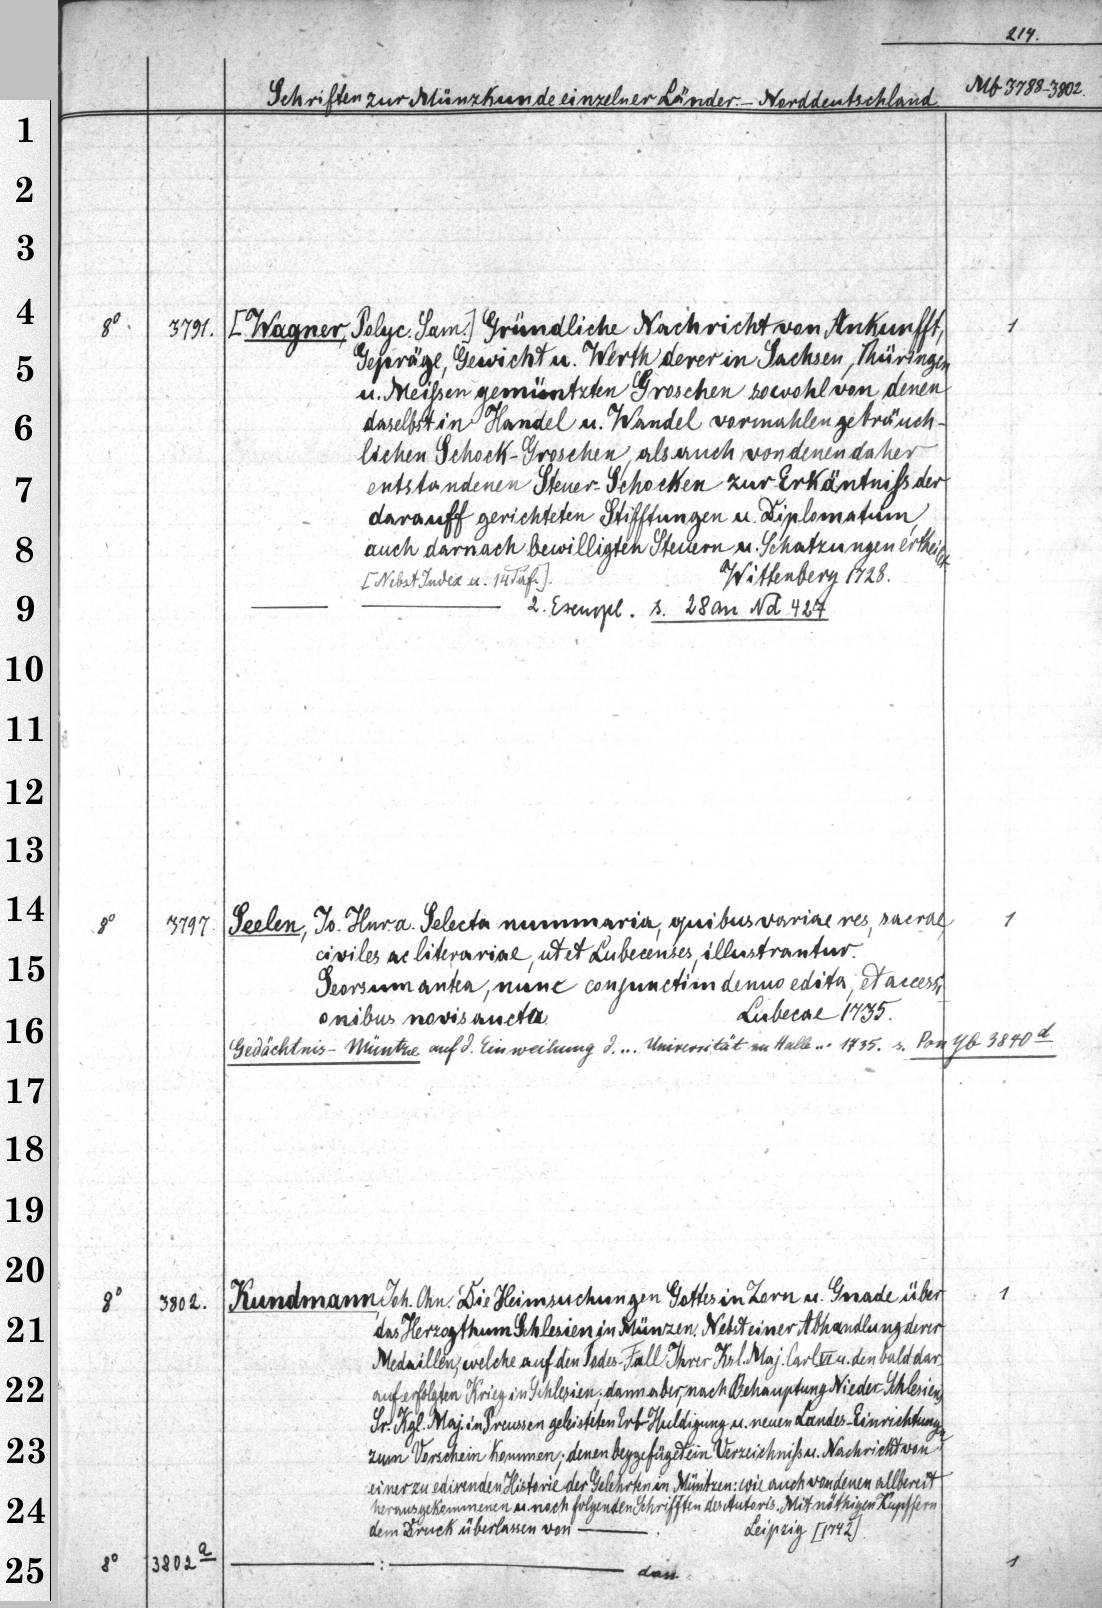 214.
Schriften zur Münzkunde einzelner Länder. – Norddeutschland
Mb 3788–3802.
8° 3791. [Wagner, Polyc. Sam.] Gründliche Nachricht von Ankunfft, 1
Gepräge, Gewicht u. Werth derer in Sachsen, Thüringen
u. Meißen gemüntzten Groschen sowohl von denen
daselbst in Handel u. Wandel vormahlen gebräuch-
lichen Schock-Groschen, als auch von denen daher
entstandenen Steuer-Schocken zur Erkäntniß der
darauff gerichteten Stifftungen u. Diplomatum,
auch darnach bewilligten Steuern u. Schatzungen ertheilet
[Nebst Index u. 14 Taf.]. Wittenberg 1728.
2. Exempl. s. 28 an Nd 427
8° 3797. Seelen, Jo. Henr. a. Selecta nummaria, quibus variae res, sacrae, 1
civiles ac literariae, ut et Lubecenses, illustrantur.
Seorsum antea, nunc conjunctim denuo edita, et accessi-
onibus novis aucta. Lubecae 1735.
Gedächtnis-Müntze auf d. Einweihung d. ... Universität zu Halle ... 1735. s. Pon Yb 3840 d
8° 3802. Kundmann, Joh. Chn. Die Heimsuchungen Gottes in Zorn u. Gnade über 1
das Herzogthum Schlesien in Münzen. Nebst einer Abhandlung derer
Medaillen, welche auf den Todes-Fall Ihrer Ksl. Maj. Carl VI u. den bald dar-
auf erfolgten Krieg in Schlesien; dann aber, nach Behauptung Nieder-Schlesiens,
Sr. Kgl. Maj. in Preussen geleisteten Erb-Huldigung u. neuen Landes-Einrichtung
zum Vorschein kommen; denen beygefüget ein Verzeichniß u. Nachricht von
einer zu edirenden Historie der Gelehrten in Müntzen: wie auch von denen allbereit
herausgekommenen u. noch folgenden Schrifften des Autoris. Mit nöthigen Kupffern
dem Druck überlassen von ——— . Leipzig [1742].
8° 3802 a ——— : ——— dass. 1
1
2
3
4
5
6
7
8
9
10
11
12
13
14
15
16
17
18
19
20
21
22
23
24
25